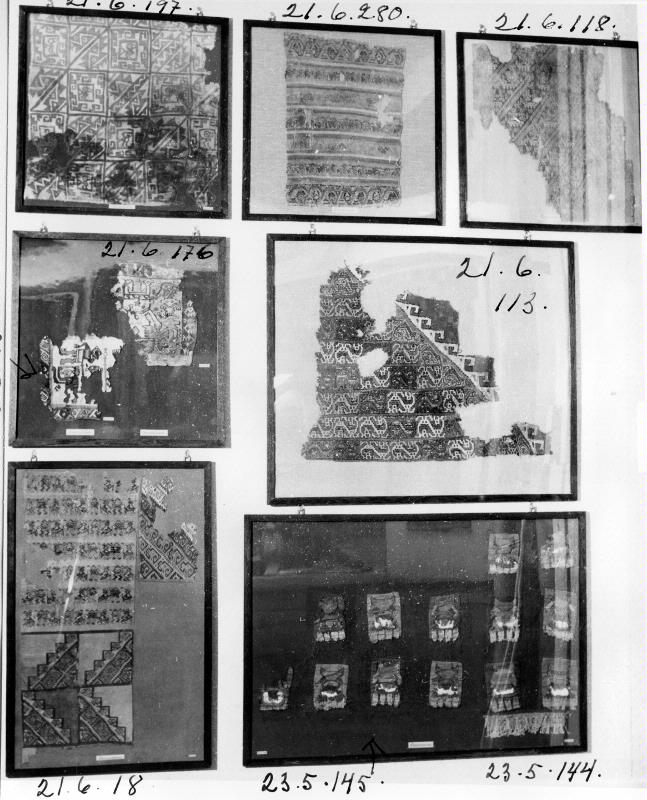 21.6.197.
21.6.280.
21.6.118.
21.6.176
21.6.
113.
21.6.18
23.5.145.
23.5.144.